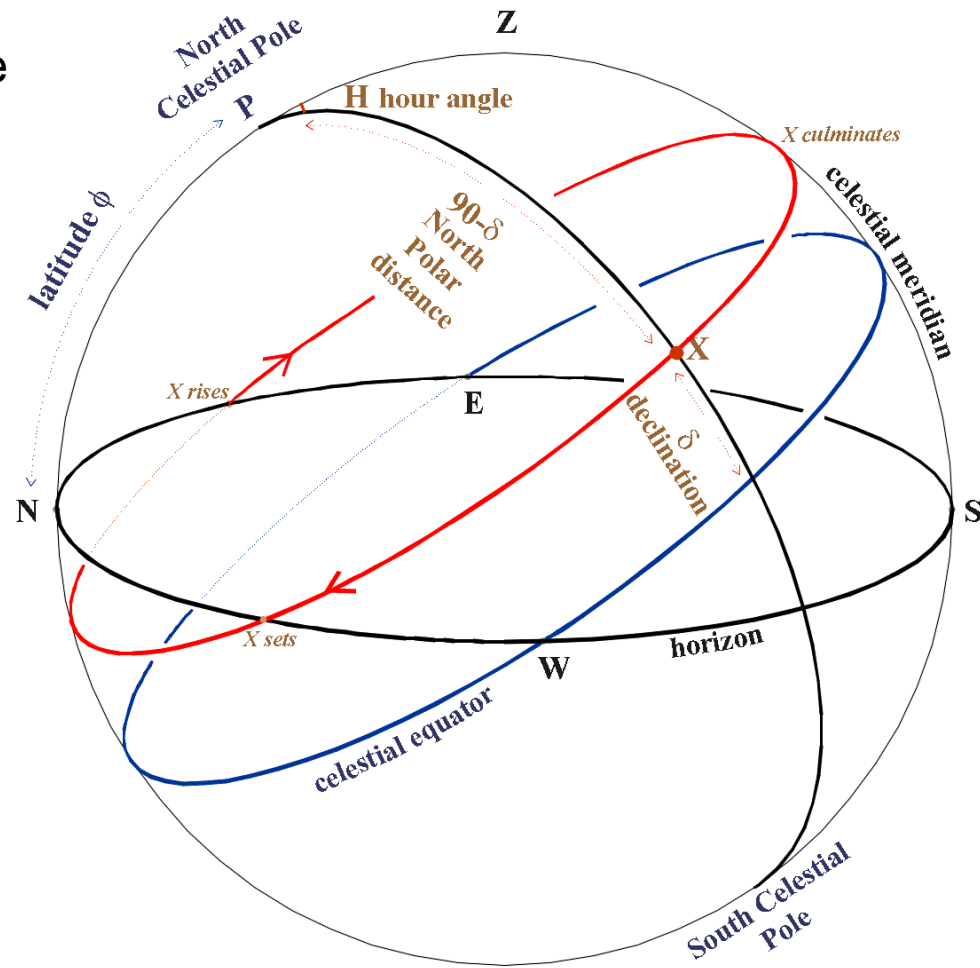 e
Z
North
Celestial Pole
P
H hour angle
X culminates
celestial meridian
latitude ϕ
90-δ
North
Polar
distance
X
X rises
E
δ
declination
N
S
X sets
W
horizon
celestial equator
South Celestial
Pole